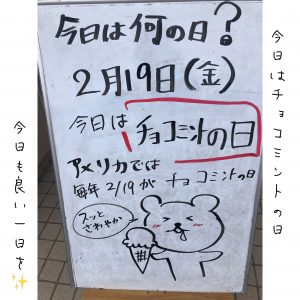 今日はチョコミントの日
今日は何の日?
2月19日(金)
今日は
チョコミントの日
アメリカでは
毎年2/19がチョコミントの日
スッと
さわやか
今日も良い一日を✨